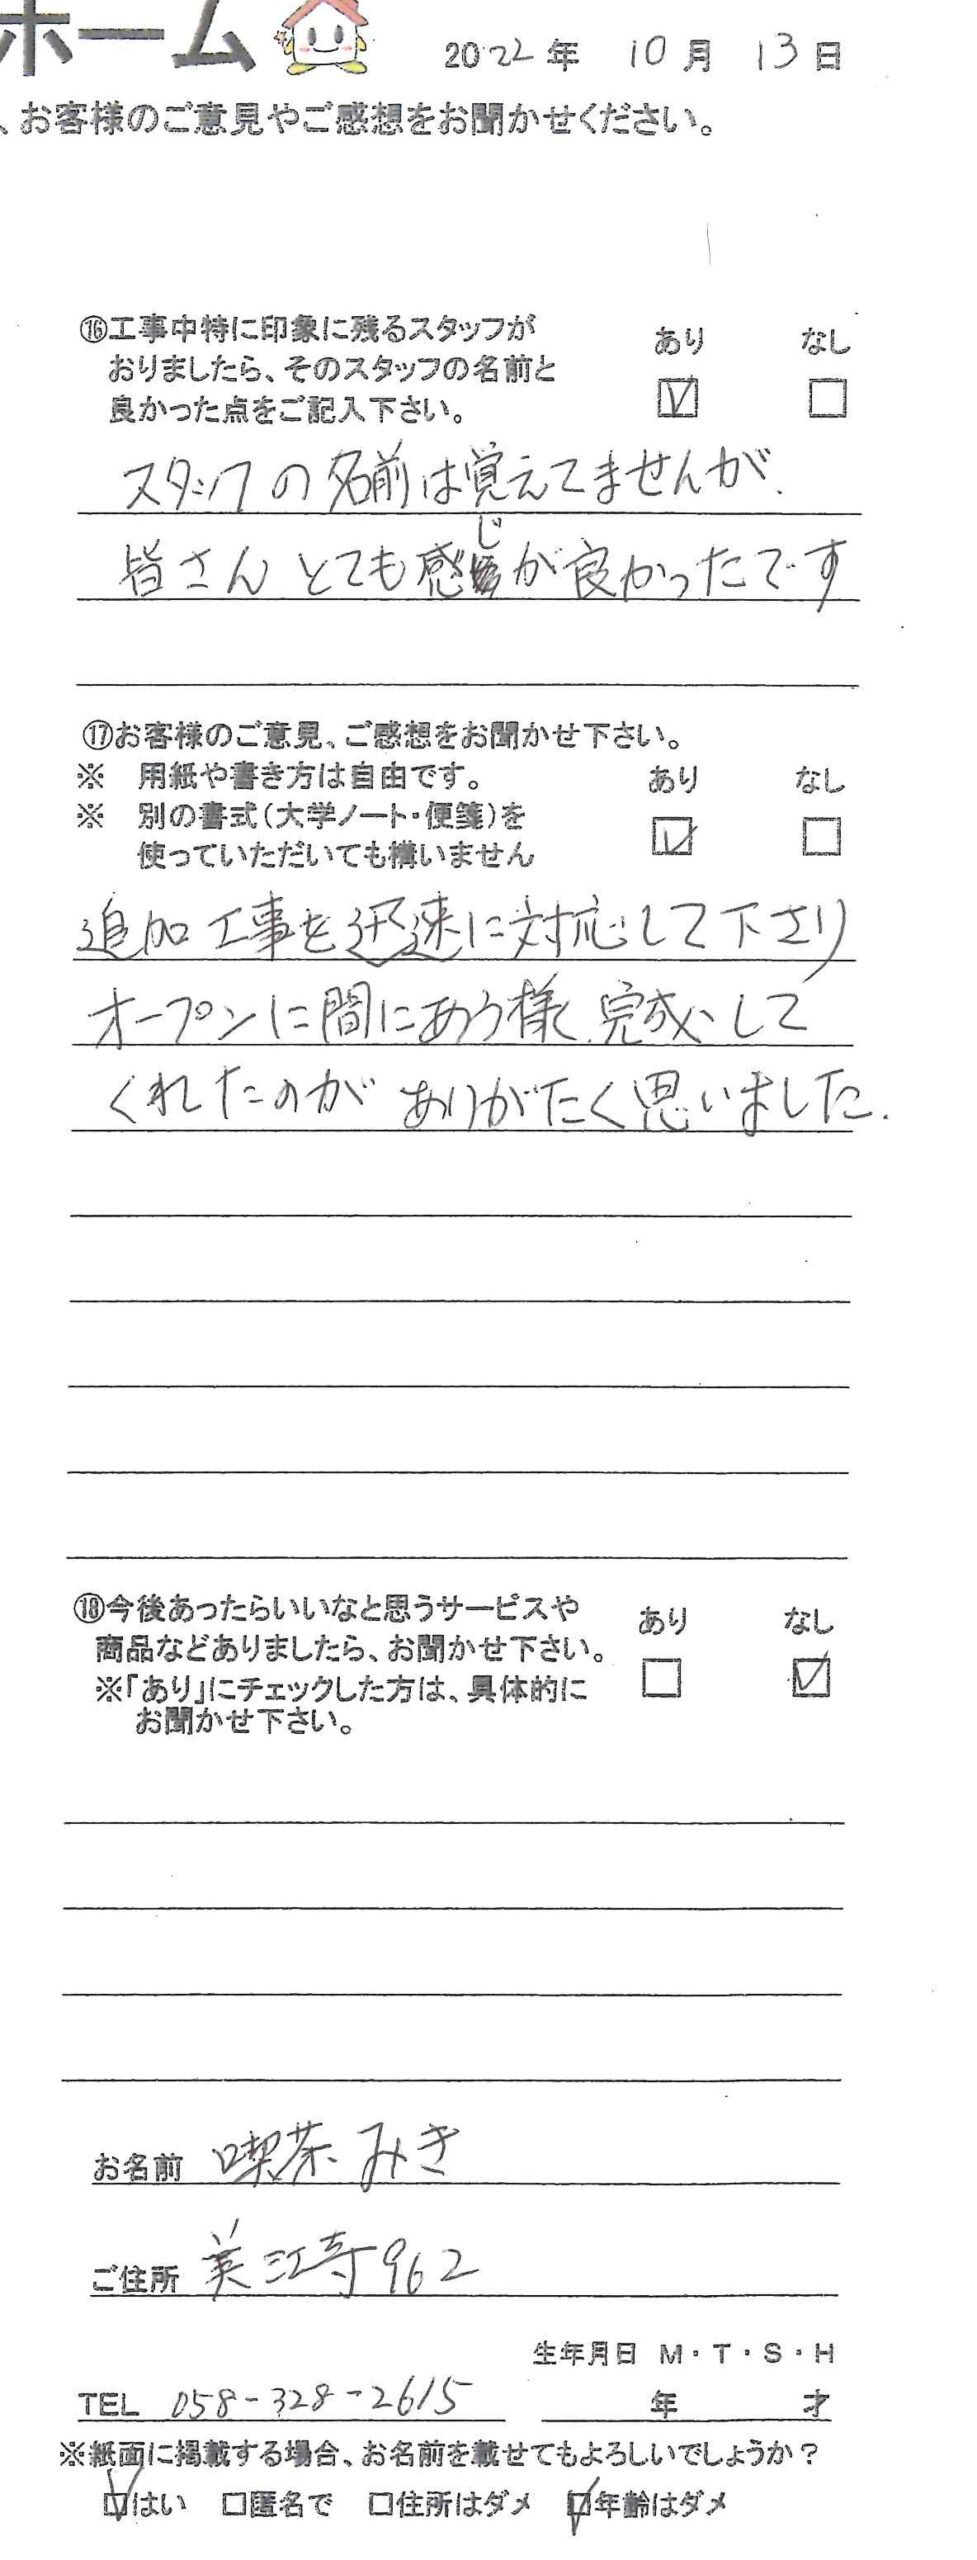 ホーム
2022年 10月 13日
、お客様のご意見やご感想をお聞かせください。
⑯工事中特に印象に残るスタッフが
おりましたら、そのスタッフの名前と
良かった点をご記入下さい。
あり なし
スタッフの名前は覚えてませんが、
皆さんとても感じが良かったです
⑰お客様のご意見、ご感想をお聞かせ下さい。
※ 用紙や書き方は自由です。
※ 別の書式(大学ノート・便箋)を
使っていただいても構いません
あり なし
追加工事を迅速に対応して下さり
オープンに間にあう様、完成して
くれたのがありがたく思いました.
⑱今後あったらいいなと思うサービスや
商品などありましたら、お聞かせ下さい。
※「あり」にチェックした方は、具体的に
お聞かせ下さい。
あり なし
お名前 喫茶みき
ご住所 美江寺962
生年月日 M・T・S・H
TEL 058-328-2615 年 才
※紙面に掲載する場合、お名前を載せてもよろしいでしょうか?
はい □匿名で □住所はダメ 年齢はダメ